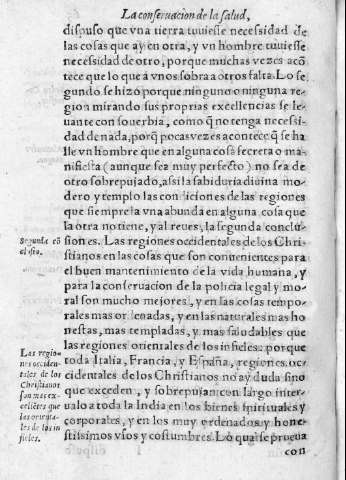 La conseruacion de la salud,
dispuso que vna tierra tuuiesse necessidad de
las cosas que ay en otra, y vn hombre tuuiesse
necessidad de otro, porque muchas vezes acõ
tece lo que a vnos sobra a otros falta. Lo se
gundo se hizò porque ninguno o ninguna re
gion mirando sus proprias excellencias se le-
uante con souerbia, como q̃ no tenga necessi-
dad de nada, porq̃ pocas vezes acontece q̃ se ha
lle vn hombre que en alguna cosa secreta o ma-
nifiesta (aunque sea muy perfecto) no sea de
otro sobrepujado, assi la sabiduria diuina mo-
dero y templo las condiciones de las regiones
que siempre la vna abunda en alguna cosa que
la otra no tiene, y al reues, la segunda conclu-
siones. Las regiones occidentales de los Chri-
stianos en las cosas que son conuenientes para
el buen mantenimiento de la vida humana, y
para la conseruacion de la policia legal y mo-
ral son mucho mejores, y en las cosas tempo-
rales mas ordenadas, y en las naturales mas ho
nestas, mas templadas, y mas saludables que
las regiones orientales de los infieles: porque
toda Italia, Francia, y España, regiones oc-
cidentales de los Christianos no ay duda sino
que exceden, y sobrepujan con largo inter-
ualo a toda la India en los bienes spirituales y
corporales, y en los muy ordenados y hone-
stissimos vsos y costumbres. Lo qual se prueua
con
Segunda cõ
clusiõ.
Las regio-
nes occiden-
tales de los
Christianos
son mas ex-
celẽtes que
las oriẽta-
les de los in
fieles.